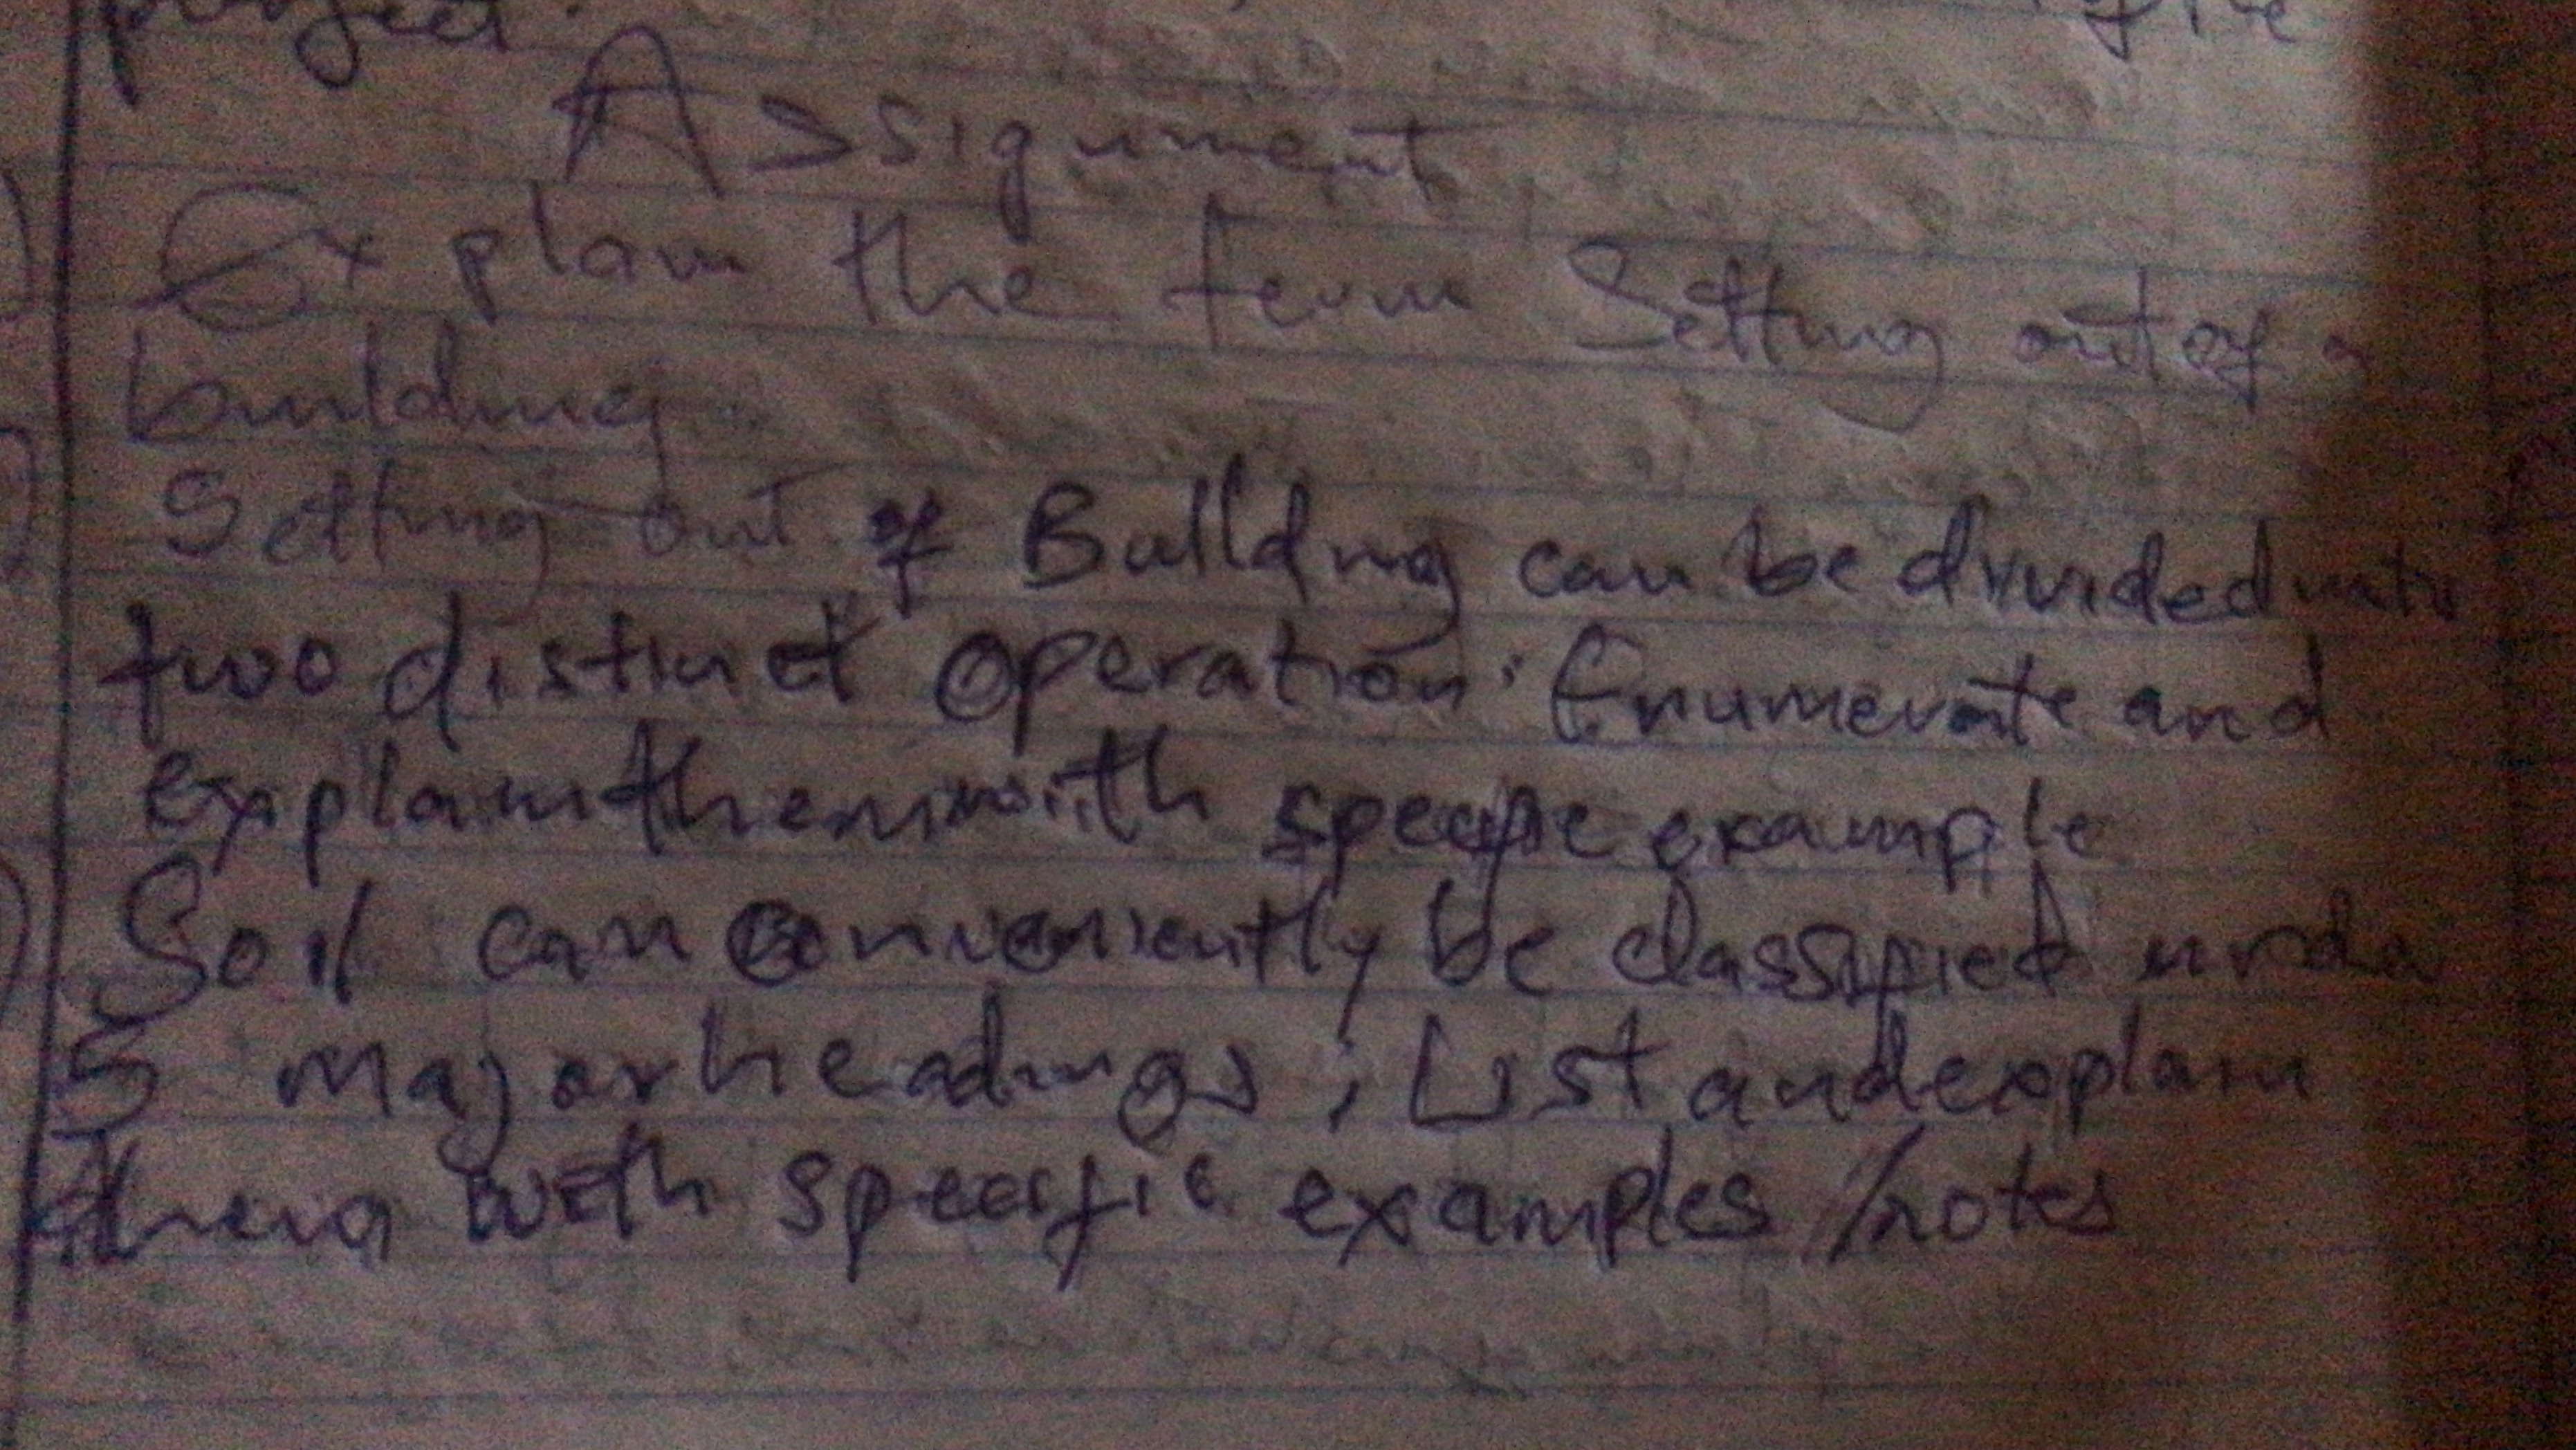 Assignment
Explain the term Setting out of a
building
Setting out of Building can be divided into
two distinct operation. Enumerate and
explain them with specific example
Soil can conveniently be classified under
5 major headings, List and explain
them with specific examples/notes